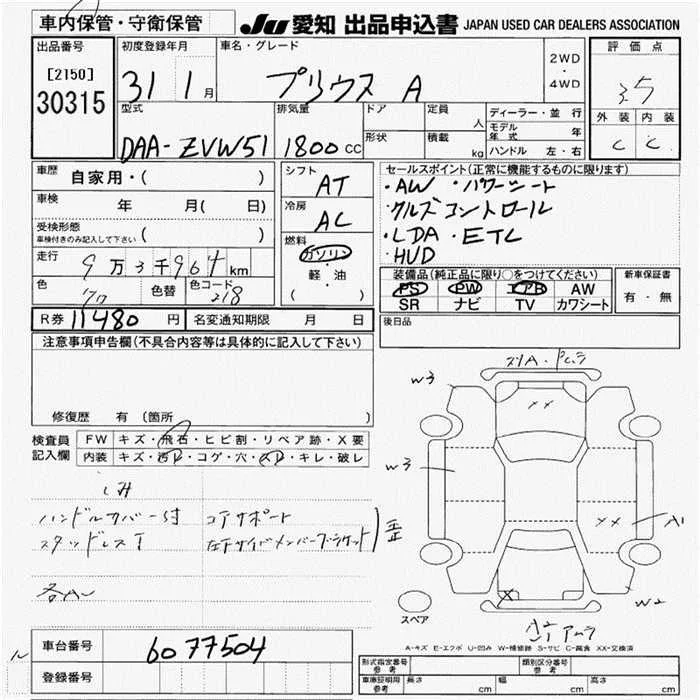 車内保管・守衛保管
JU 愛知 出品申込書 JAPAN USED CAR DEALERS ASSOCIATION
出品番号
[2150]
30315
初度登録年月
31 1 月
車名・グレード
プリウス A
2WD
・
4WD
評価点
3.5
外装 内装
C C
型式
DAA-ZVW51
排気量
1800 CC
ドア
形状
定員
人
積載
kg
ディーラー・並行
モデル年式 年
ハンドル 左・右
車歴
自家用・( )
車検
年 月( 日)
受検形態
車検付きのみ記入して下さい ( )
走行
9万3千964 km
色
色替
色コード
218
シフト
AT
冷房
AC
燃料
ガソリン
・
軽・油
( )
セールスポイント(正常に機能するものに限ります)
・AW ・パワーシート
・クルズコントロール
・LDA ・ETC
・HUD
装備品(純正品に限り○をつけてください)
PS PW エアB AW
SR ナビ TV カワシート
新車保証書
有・無
R券 11480 円
名変通知期限 月 日
後日品
注意事項申告欄(不具合内容等は具体的に記入して下さい)
修復歴 有 (箇所 )
検査員記入欄
FW キズ・飛石・ヒビ割・リペア跡・X要
内装 キズ・汚レ・コゲ・穴・スレ・キレ・破レ
シミ
ハンドルカバー付
スタッドレスT
コアサポート
左下サイドメンバーブラケット
各A
W3
W3
XX
XX
A1
X
W2
スペア
A-キズ E-エクボ U-凹み W-補修跡 S-サビ C-腐食 XX-交換済
車台番号
6077504
登録番号
形式指定番号
参考
類別区分番号
参考
車庫証明用
参考
長さ cm
幅 cm
高さ cm